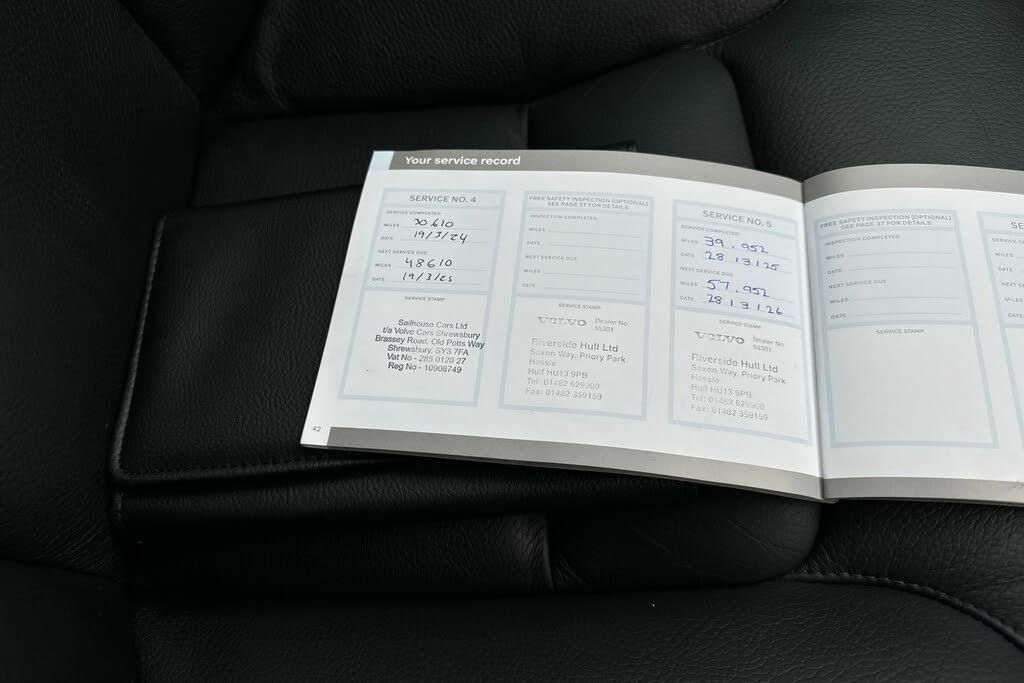 Your service record
SERVICE NO. 4
SERVICE COMPLETED
MILES 30.610
DATE 19/3/24
NEXT SERVICE DUE
MILES 48610
DATE 19/3/25
SERVICE STAMP
Sailhouse Cars Ltd
t/a Volvo Cars Shrewsbury
Brassey Road, Old Potts Way
Shrewsbury, SY3 7FA
Vat No - 285 0120 27
Reg No - 10908749
42
FREE SAFETY INSPECTION (OPTIONAL)
SEE PAGE 37 FOR DETAILS
INSPECTION COMPLETED
MILES
DATE
NEXT SERVICE DUE
MILES
DATE
SERVICE STAMP
VOLVO Dealer No
55301
Riverside Hull Ltd
Saxon Way, Priory Park
Hassle
Hull HU13 9PB
Tel: 01482 629900
Fax: 01482 359159
SERVICE NO. 5
SERVICE COMPLETED
MILES 39.952
DATE 28/3/25
NEXT SERVICE DUE
MILES 57.952
DATE 28/3/26
SERVICE STAMP
VOLVO Dealer No
55301
Riverside Hull Ltd
Saxon Way, Priory Park
Hassle
Hull HU13 9PB
Tel: 01482 629900
Fax: 01482 359159
FREE SAFETY INSPECTION (OPTIONAL)
SEE PAGE 37 FOR DETAILS
INSPECTION COMPLETED
MILES
DATE
NEXT SERVICE DUE
MILES
DATE
SERVICE STAMP
SE
SERVICE C
MILES
DATE
NEXT SER
MILES
DATE